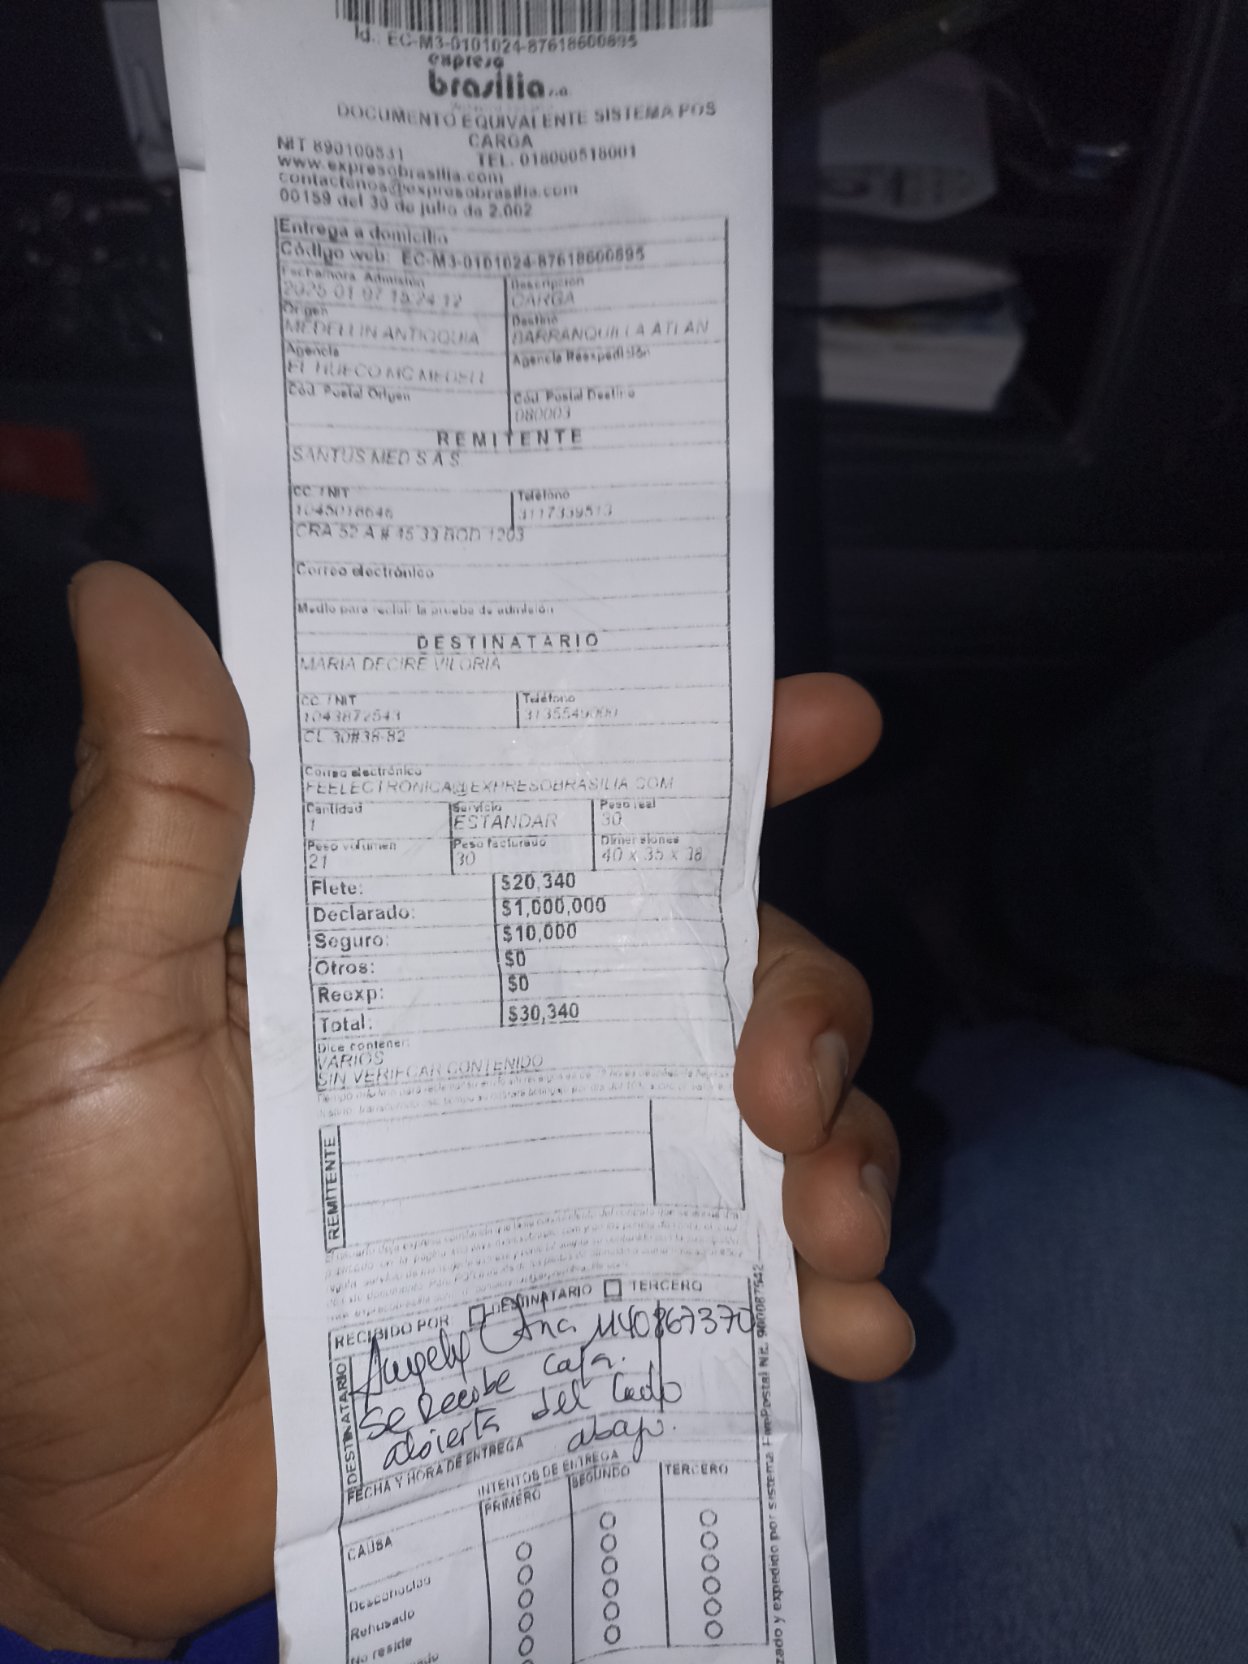 Id.: EC-M3-0101024-87618600895
expreso
brasilia s.a.
DOCUMENTO EQUIVALENTE SISTEMA POS
CARGA
NIT 890100531 TEL. 018000518001
www.expresobrasilia.com
contactenos@expresobrasilia.com
00159 del 30 de julio de 2.002
Entrega a domicilio
Código web: EC-M3-0101024-87618600895
Fecha/hora Admisión Descripción
2025-01-07 15:24:12 CARGA
Origen Destino
MEDELLIN ANTIOQUIA BARRANQUILLA ATLAN
Agencia Agencia Reexpedición
EL HUECO MC MEDELL
Cód. Postal Origen Cód. Postal Destino
080003
REMITENTE
SANTUS MED S A S
CC / NIT Teléfono
1045018646 3117339513
CRA 52 A # 45 33 BOD 1203
Correo electrónico
Medio para recibir la prueba de admisión
DESTINATARIO
MARIA DECIRE VILORIA
CC / NIT Teléfono
1043872543
CL 30#38-82
Correo electrónico
FEELECTRONICA@EXPRESOBRASILIA.COM
Cantidad Servicio Peso real
1 ESTANDAR 30
Peso volumen Peso facturado Dimensiones
21 30 40 x 35 x 38
Flete: $20,340
Declarado: $1,000,000
Seguro: $10,000
Otros: $0
Reexp: $0
Total: $30,340
Dice contener:
VARIOS
SIN VERIFICAR CONTENIDO
REMITENTE
RECIBIDO POR DESTINATARIO TERCERO
DESTINATARIO
1140867370
Se Recibe caja.
abierta del lado
abajo.
FECHA Y HORA DE ENTREGA
INTENTOS DE ENTREGA
CAUSA PRIMERO SEGUNDO TERCERO
Desconocido
Rehusado
No reside
expedido por sistema FirePostal Nit. 900087542